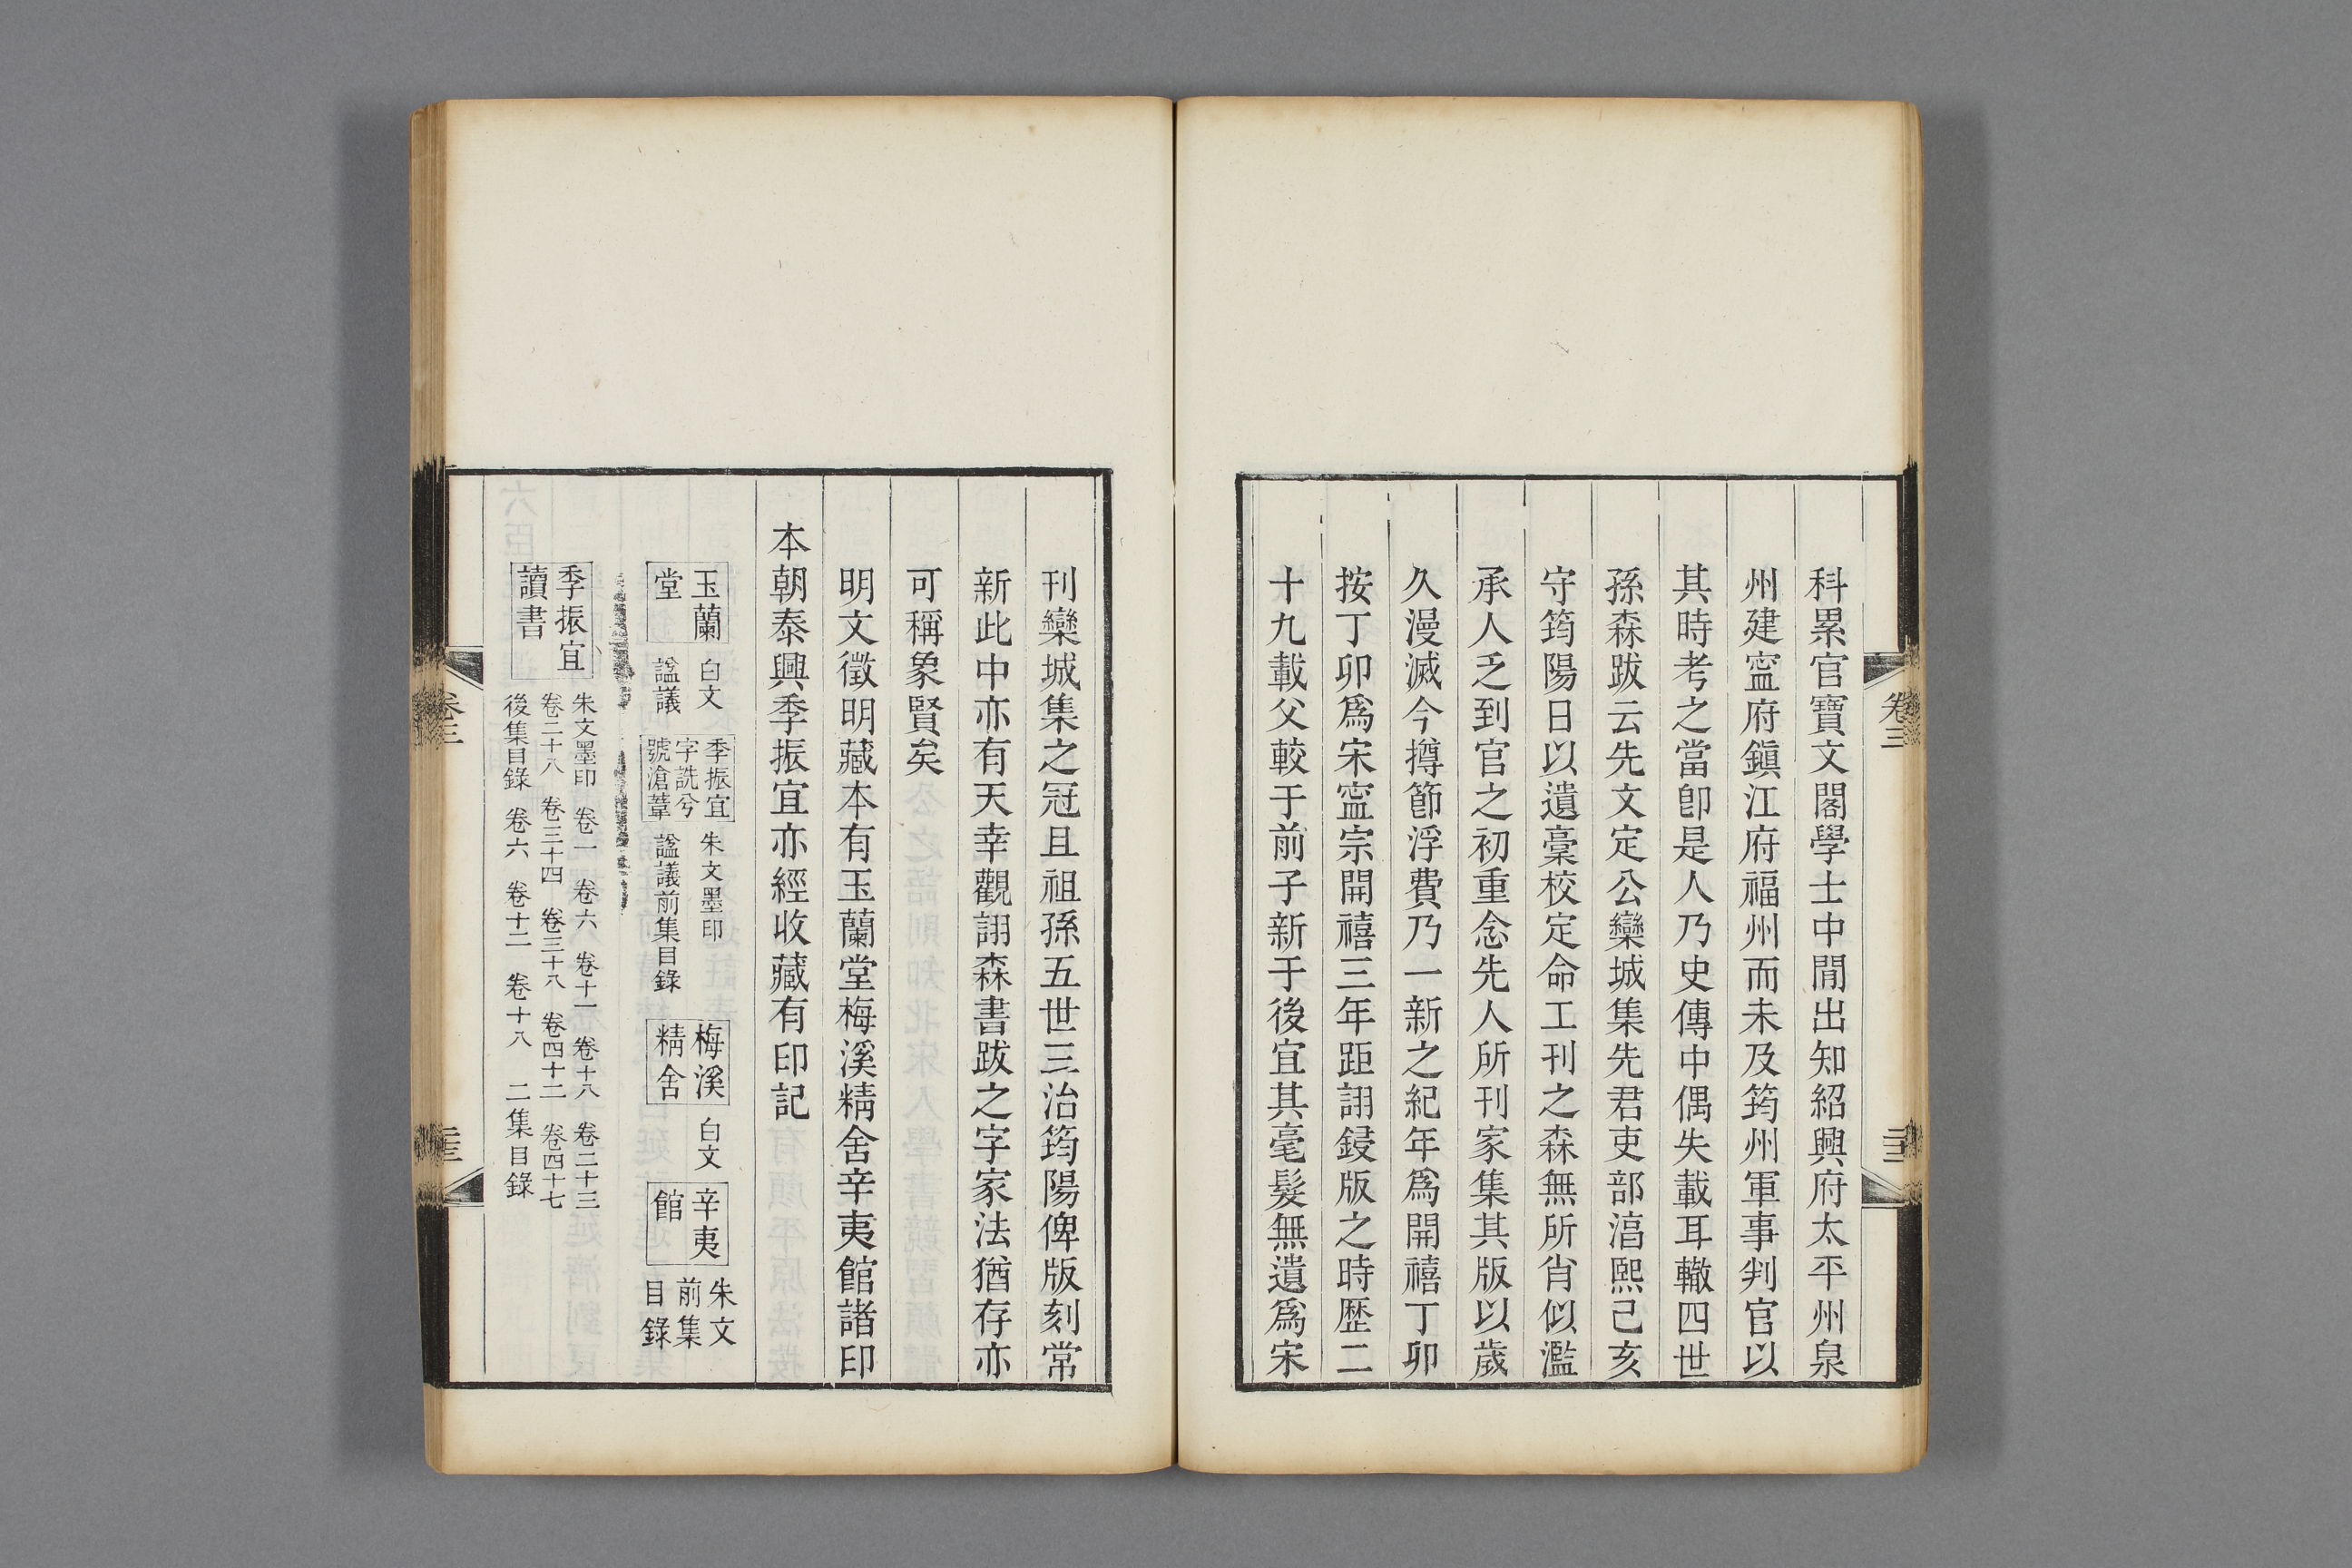 科累官寶文閣學士中閒出知紹興府太平州泉
州建寍府鎭江府福州而未及筠州軍事判官以
其時考之當卽是人乃史傳中偶失載耳轍四世
孫森跋云先文定公欒城集先君吏部淯熙己亥
守筠陽日以遺稾校定命工刊之森無所肖似濫
承人乏到官之初重念先人所刊家集其版以歲
久漫滅今撙節浮費乃一新之紀年爲開禧丁卯
按丁卯爲宋寍宗開禧三年距詡鋟版之時歷二
十九載父較于前子新于後宜其毫髮無遺爲宋
刊欒城集之冠且祖孫五世三治筠陽俾版刻常
新此中亦有天幸觀詡森書跋之字家法猶存亦
可稱象賢矣
明文徵明藏本有玉蘭堂梅溪精舍辛夷館諸印
本朝泰興季振宜亦經收藏有印記
玉蘭堂 白文 謚議 季振宜字詵兮號滄葦 朱文墨印 謚議前集目錄 梅溪精舍 白文 辛夷館 朱文前集目錄
季振宜讀書 朱文墨印 卷一 卷六 卷十一 卷十八 卷二十三
卷二十八 卷三十四 卷三十八 卷四十二 卷四十七
後集目錄 卷六 卷十二 卷十八 二集目錄
卷三